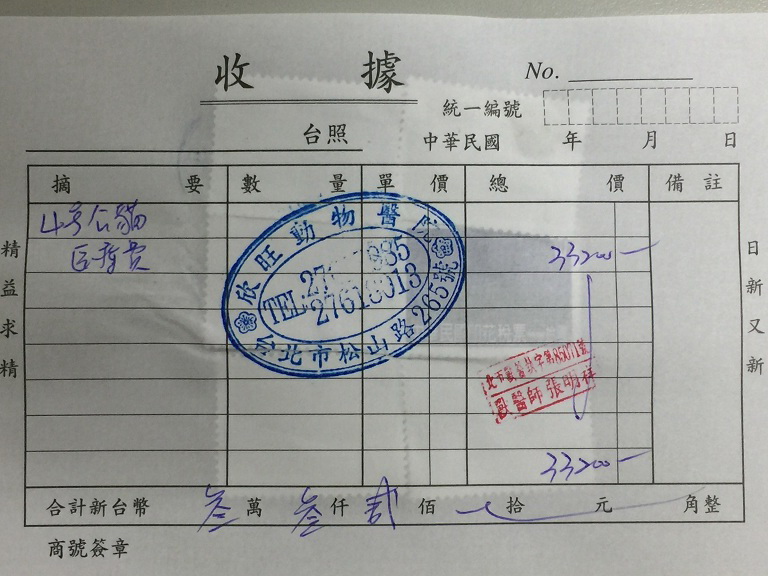 收據
No.
統一編號
台照
中華民國 年 月 日
摘要 數量 單價 總價 備註
4号公貓
医療費
33200-
欣旺動物醫院
TEL:
27618013
台北市松山路265號
獸醫師張明
33200-
合計新台幣 叁萬叁仟貳佰 拾 元 角整
商號簽章
精益求精
日新又新